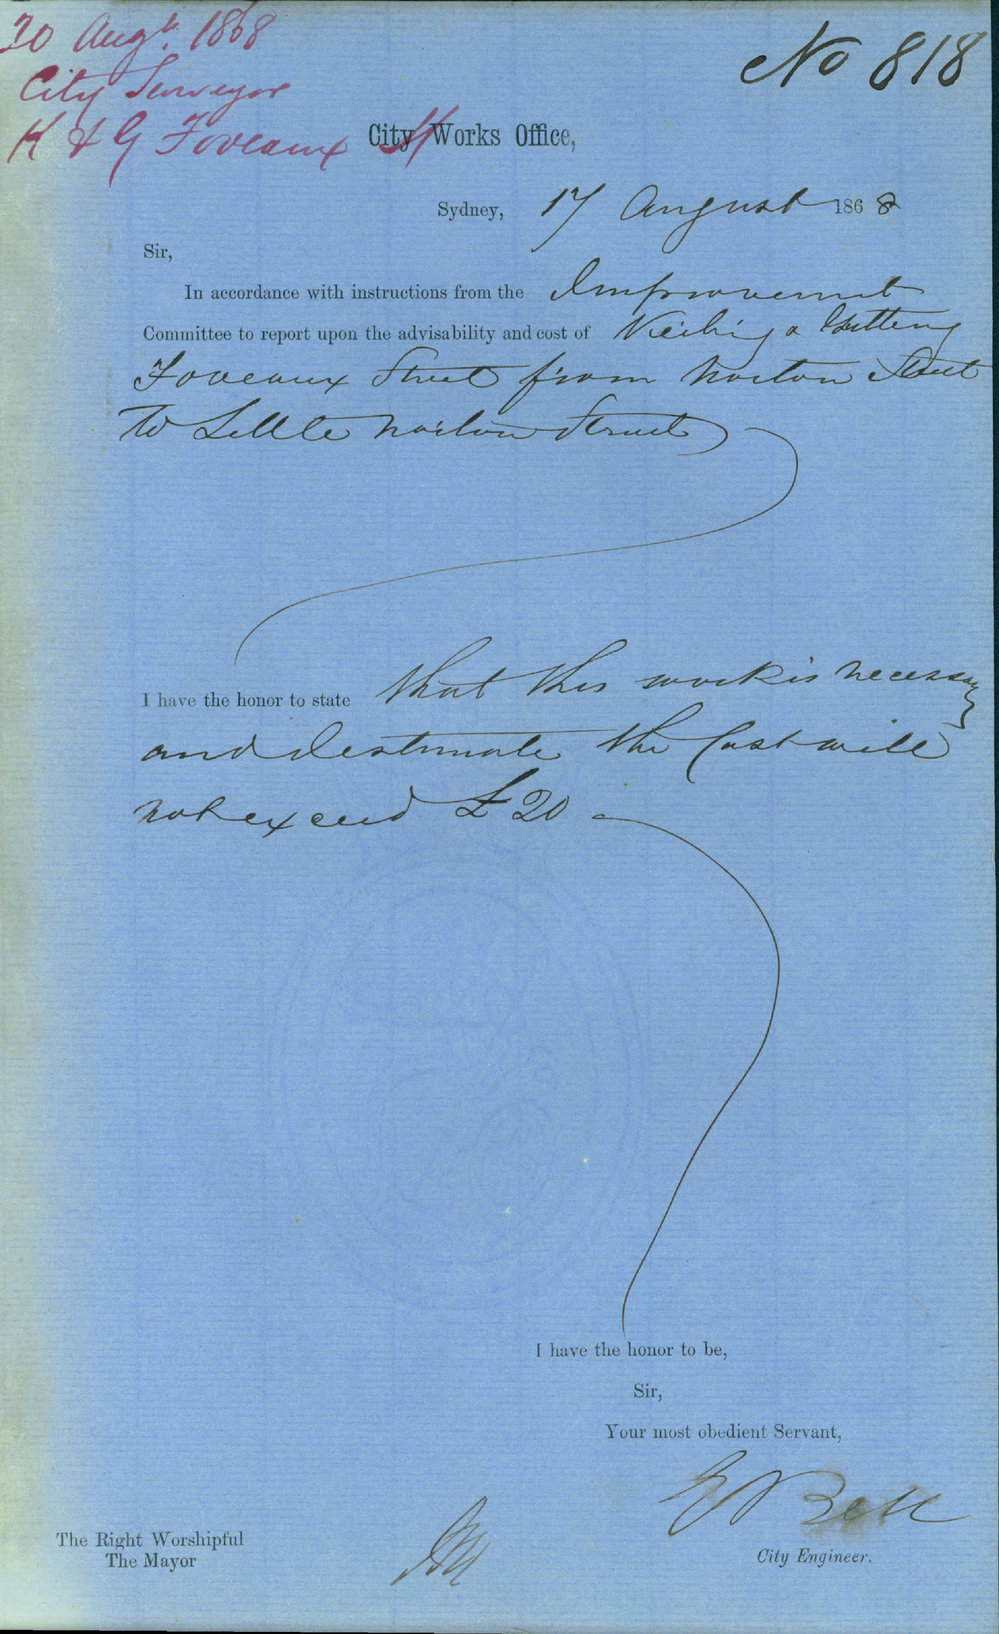 20 Augt. 1868
City Surveyor
K & G Foveaux St
No 818
City Works Office,
Sydney, 17 August 1868
Sir,
In accordance with instructions from the Improvement
Committee to report upon the advisability and cost of Kerbing & Guttering
Foveaux Street from Norton Street
to Little Norton Street
I have the honor to state that this work is necessary
and I estimate the Cost will
not exceed £20
I have the honor to be,
Sir,
Your most obedient Servant,
E Bell
City Engineer.
The Right Worshipful
The Mayor